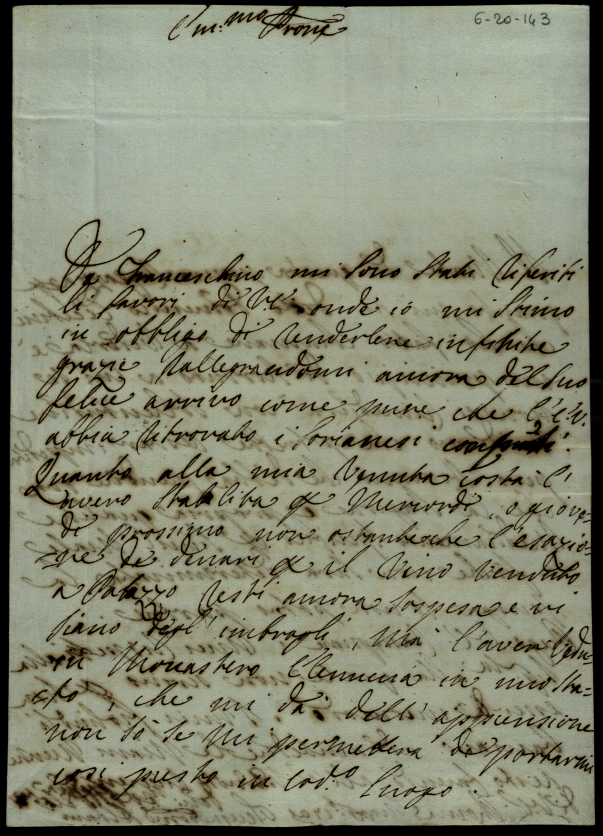 6-20-143
Em.mo Prone
Da Franceschino mi sono stati riferiti
li favori di V.E. onde io mi stimo
in obbligo di renderlene infinite
grazie rallegrandomi ancora del suo
felice arrivo come pure che l'E.V.
abbia ritrovato i Sorianesi
Quanto alla mia venuta costà l'
avevo stabilita p Mercordi, o giove-
di prossimo non ostante che l'esazio-
ne de denari p il vino venduto
a Palazzo resti ancora sospesa e vi
siano degl'imbrogli, mà l'aver vedu-
in Monastero Clemenza in uno sta-
to, che mi dà dell'apprensione
non sò se mi permetterà di portarmi
così presto in cod.o luogo.